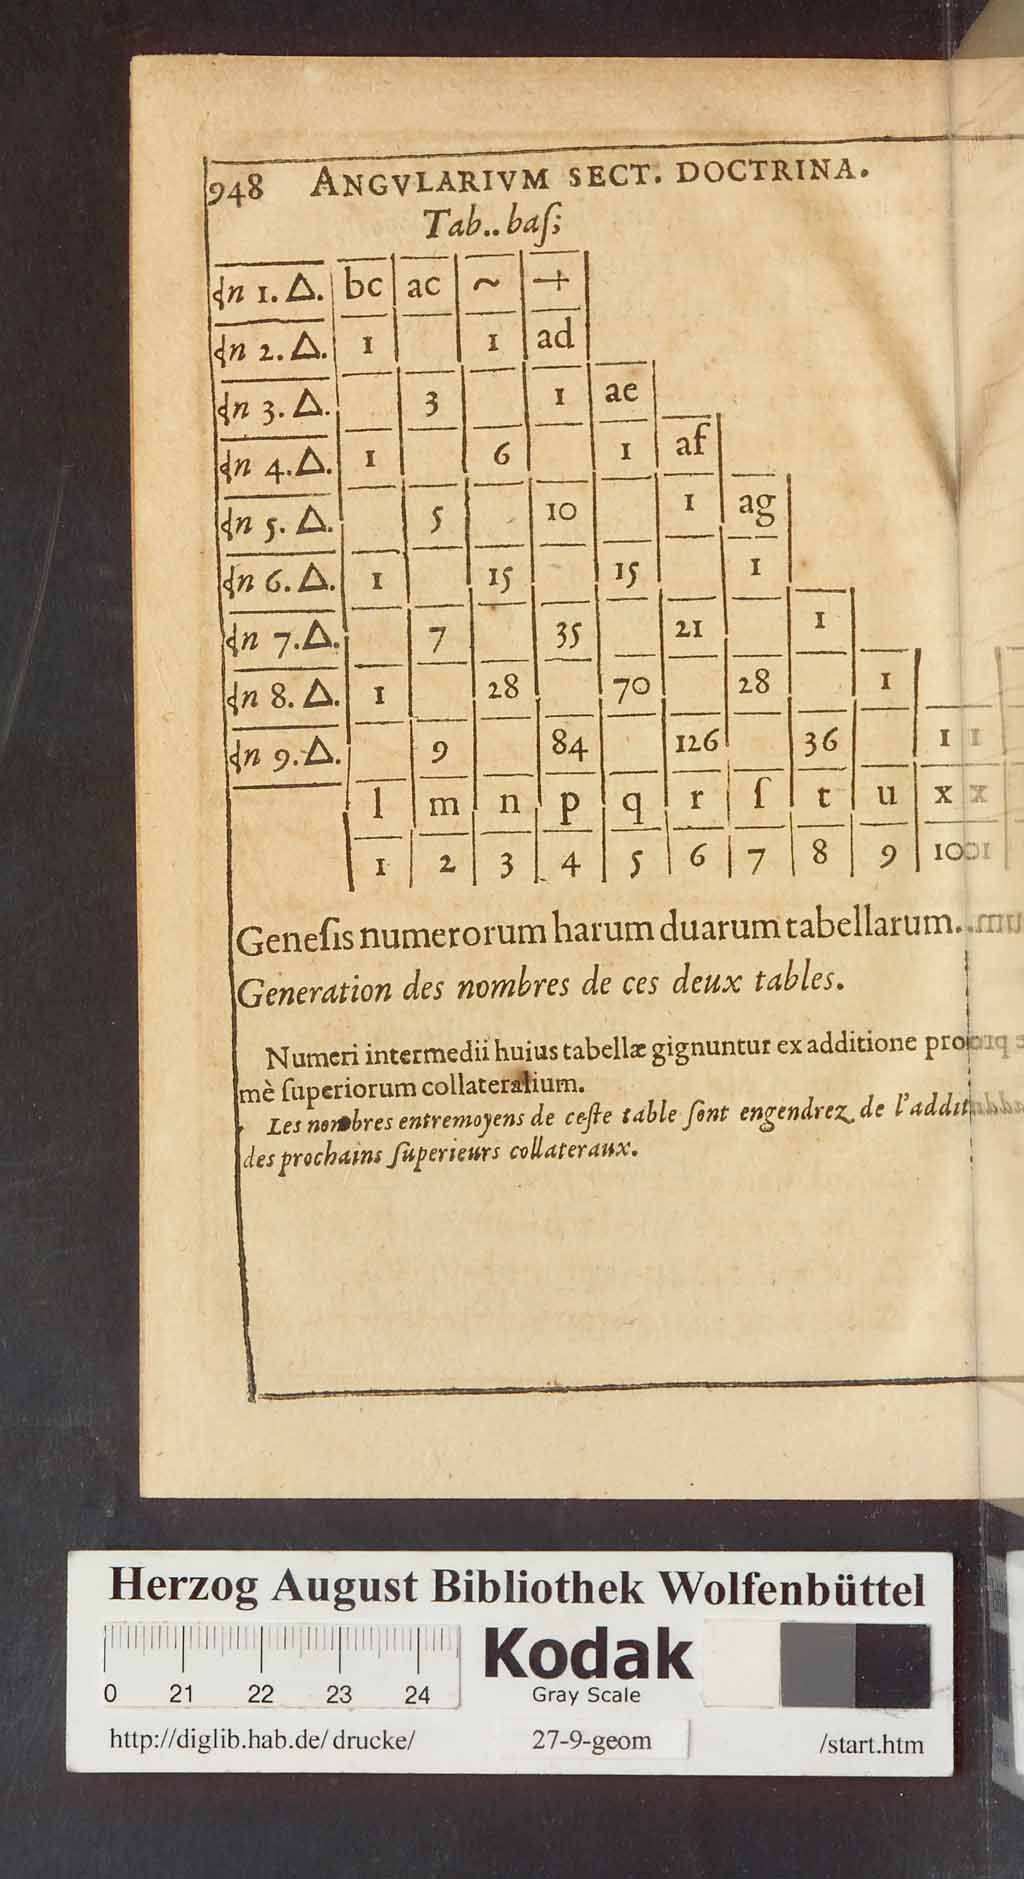 948 ANGVLARIVM SECT. DOCTRINA.
Tab..baſ;
n 1. △. bc ac ~ +
n 2. △. 1 1 ad
n 3. △. 3 1 ae
n 4. △. 1 6 1 af
n 5. △. 5 10 1 ag
n 6. △. 1 15 15 1
n 7. △. 7 35 21 1
n 8. △. 1 28 70 28 1
n 9. △. 9 84 126 36 1
l m n p q r ſ t u x
1 2 3 4 5 6 7 8 9 10
Geneſis numerorum harum duarum tabellarum.
Generation des nombres de ces deux tables.
Numeri intermedii huius tabellæ gignuntur ex additione pro
mè ſuperiorum collateralium.
Les nombres entremoyens de ceſte table ſont engendrez de l'addit
des prochains ſuperieurs collateraux.
Herzog August Bibliothek Wolfenbüttel
Kodak
Gray Scale
0 21 22 23 24
http://diglib.hab.de/drucke/ 27-9-geom /start.htm